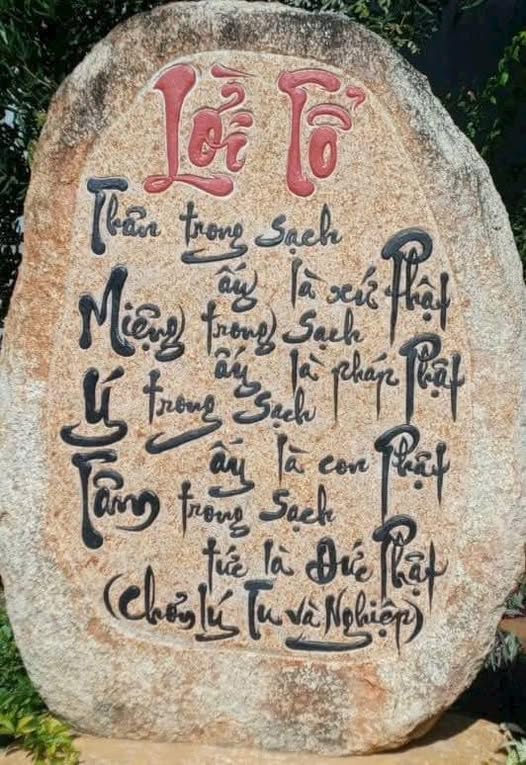 Lời Tổ
Thân trong sạch
ấy là xứ Phật
Miệng trong sạch
ấy là pháp Phật
Ý trong sạch
ấy là con Phật
Tâm trong sạch
tức là Đức Phật
(Chơn lý Tu và Nghiệp)